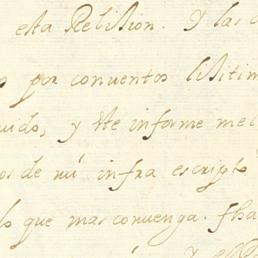 esta Religion. Y las
por conuentos lisitim
uido, y Vte informe me
os de mi infra escripto
lo que mas conuenga. fha